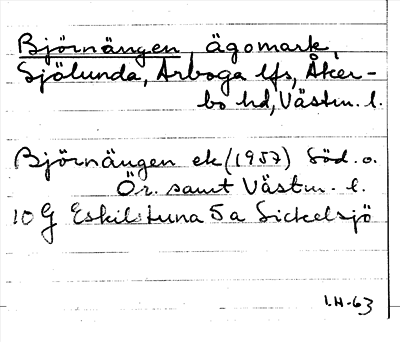 Björnängen, ägomark,
Sjölunda, Arboga lfs, Åker-
bo hd, Västm. l.
Björnängen ek (1957) Söd. o.
Ör. samt Västm. l.
10 G Eskilstuna 5 a Sickelsjö
I.H-63